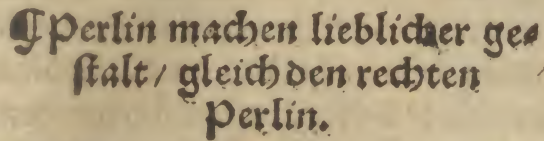 ¶ Perlin machen lieblicher ge⸗
ſtalt / gleich den rechten
Perlin.